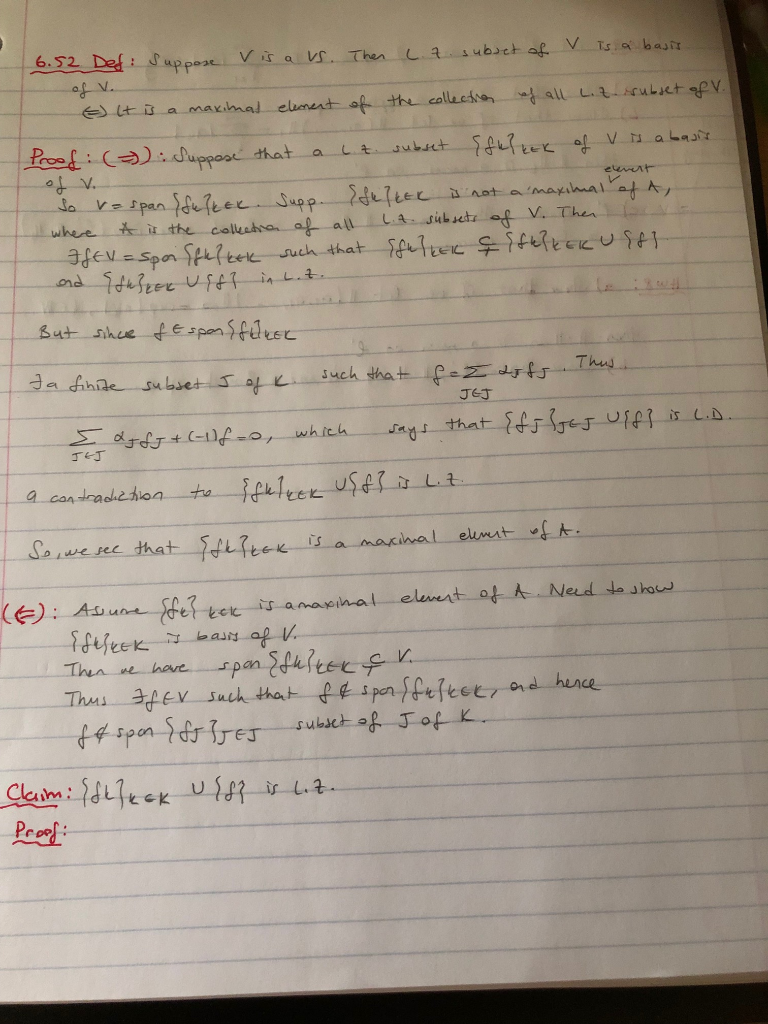 6.52 Def: Suppose V is a VS. Then L.I. subset of V is a basis
of V.
⟺ It is a maximal element of the collection of all L.I. subset of V.
Proof: (⇒): Suppose that a L.I. subset {fk}k∈K of V is a basis
of V.
element
So V = span {fk}k∈K. Supp. {fk}k∈K is not a maximal ✓ of A,
where A is the collection of all L.I. subsets of V. Then
∃f∈V = span {fk}k∈K such that {fk}k∈K ⊊ {fk}k∈K ∪ {f}
and {fk}k∈K ∪ {f} is L.I.
But since f ∈ span {fk}k∈K
∃ a finite subset J of K such that f = Σ αJ fJ. Thus
J∈J
Σ αJ fJ + (-1)f = 0, which says that {fJ}J∈J ∪ {f} is L.D.
J∈J
a contradiction to {fk}k∈K ∪ {f} is L.I.
So, we see that {fk}k∈K is a maximal element of A.
(⇐): Assume {fk}k∈K is a maximal element of A. Need to show
{fk}k∈K is basis of V.
Then we have span {fk}k∈K ⊊ V.
Thus ∃f∈V such that f ∉ span {fk}k∈K, and hence
f ∉ span {fJ}J∈J subset of J of K.
Claim: {fk}k∈K ∪ {f} is L.I.
Proof: